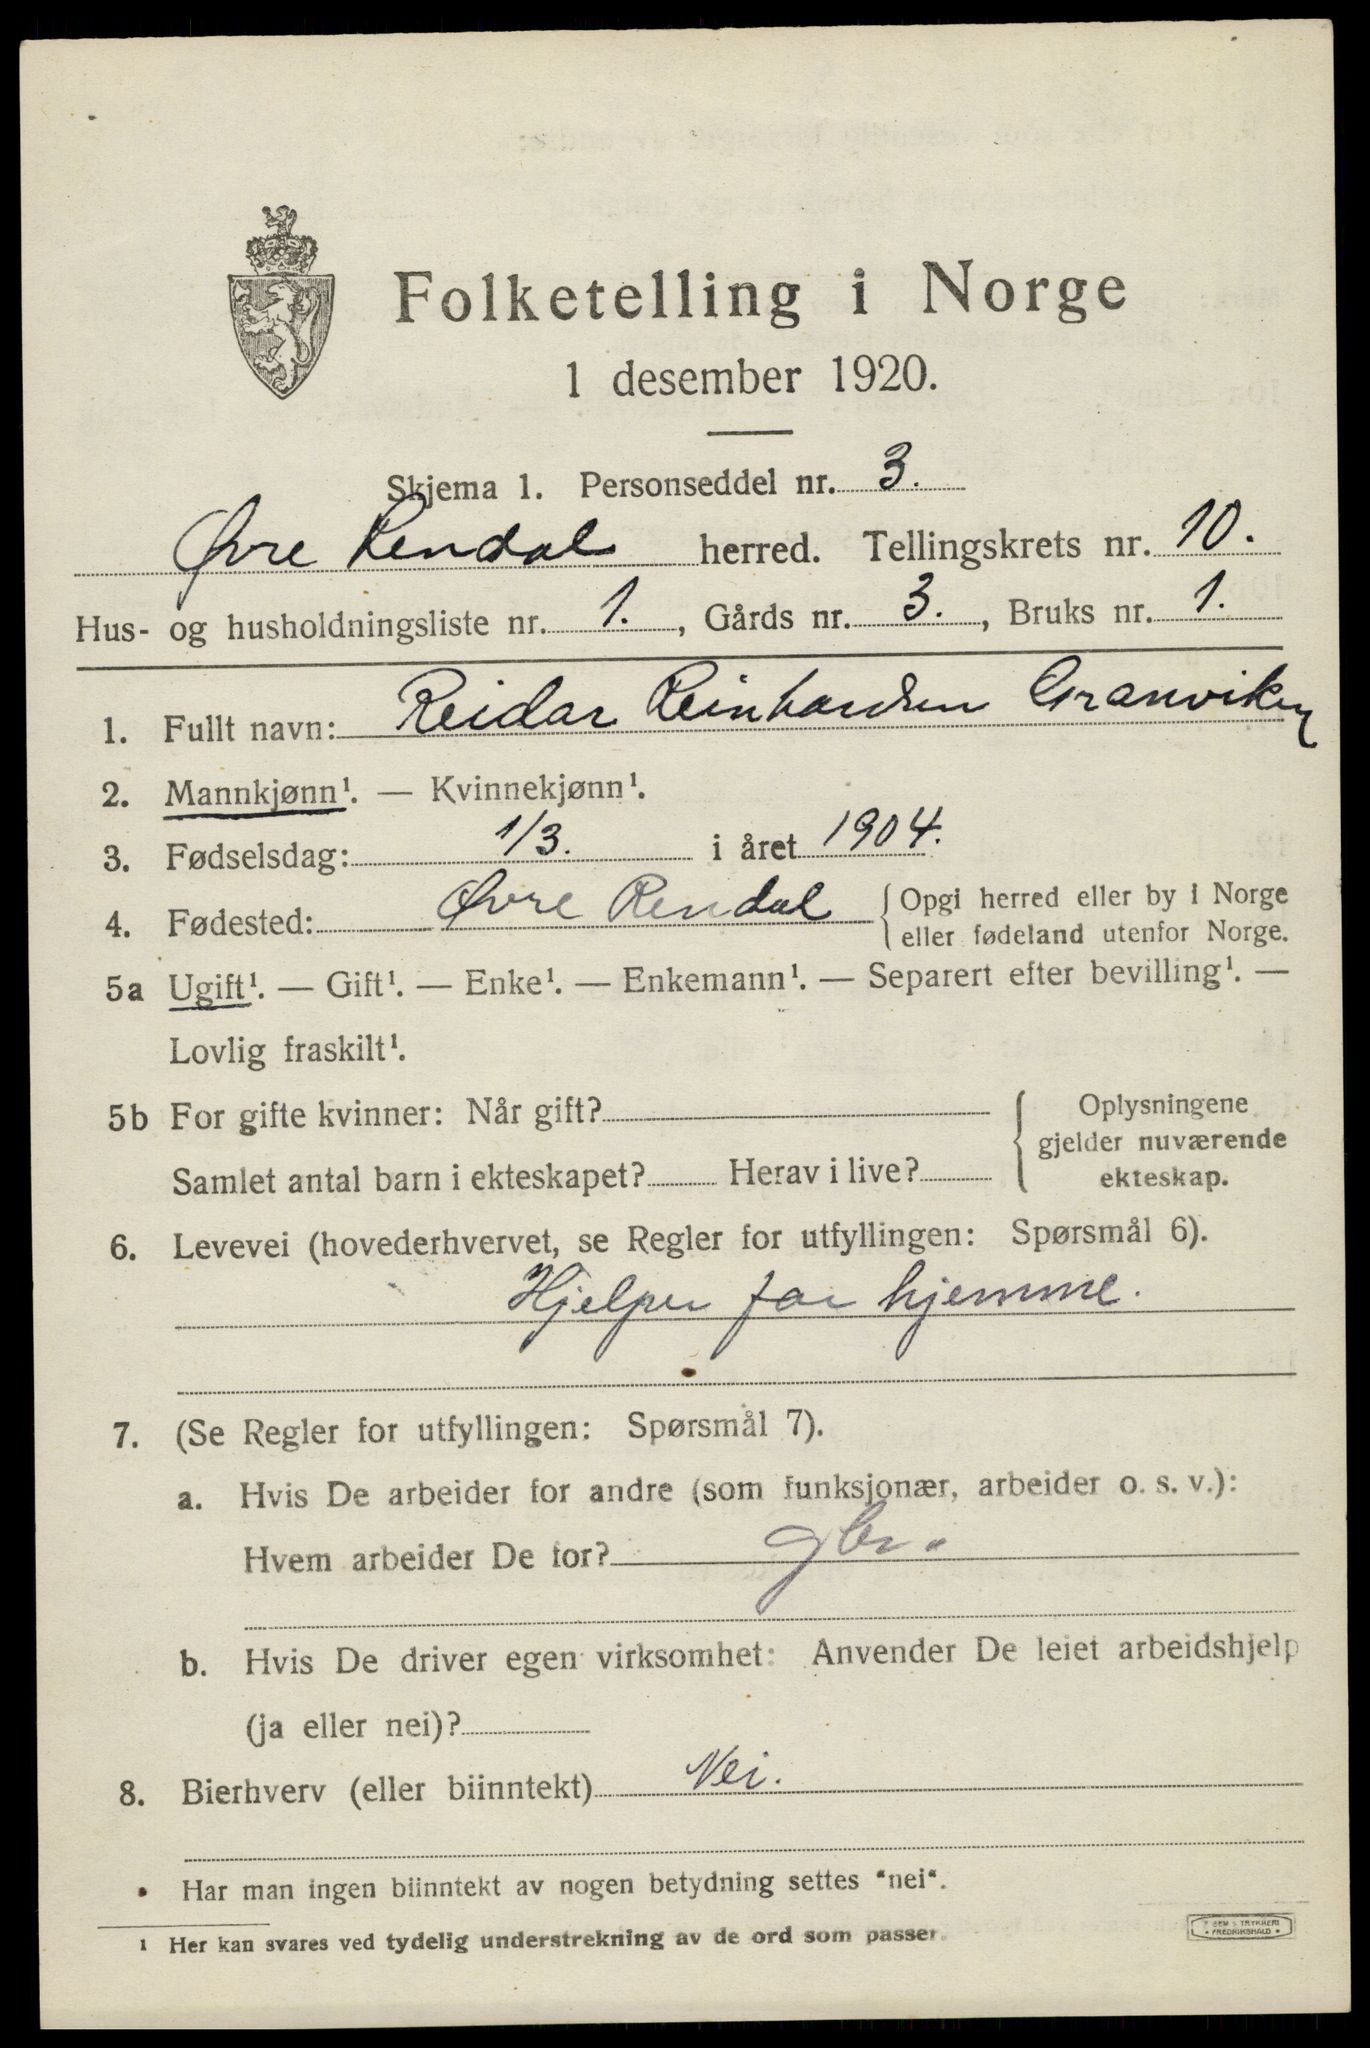 Folketelling i Norge
1 desember 1920.
Skjema 1. Personseddel nr. 3.
Øvre Rendal herred. Tellingskrets nr. 10.
Hus- og husholdningsliste nr. 1., Gårds nr. 3., Bruks nr. 1.
1. Fullt navn: Reidar Reinhardsen Granviken
2. Mannkjønn¹. — Kvinnekjønn¹.
3. Fødselsdag: 1/3. i året 1904.
4. Fødested: Øvre Rendal { Opgi herred eller by i Norge
eller fødeland utenfor Norge.
5a Ugift¹. — Gift¹. — Enke¹. — Enkemann¹. — Separert efter bevilling¹. —
Lovlig fraskilt¹.
5b For gifte kvinner: Når gift?
Samlet antal barn i ekteskapet? Herav i live?
{ Oplysningene
gjelder nuværende
ekteskap.
6. Levevei (hovederhvervet, se Regler for utfyllingen: Spørsmål 6).
Hjelper far hjemme.
7. (Se Regler for utfyllingen: Spørsmål 7).
a. Hvis De arbeider for andre (som funksjonær, arbeider o. s. v.):
Hvem arbeider De for? gbr.
b. Hvis De driver egen virksomhet: Anvender De leiet arbeidshjelp
(ja eller nei)?
8. Bierhverv (eller biinntekt) Nei.
• Har man ingen biinntekt av nogen betydning settes "nei".
¹ Her kan svares ved tydelig understrekning av de ord som passer.
TRYKKERI
• FREDRIKSHALD •